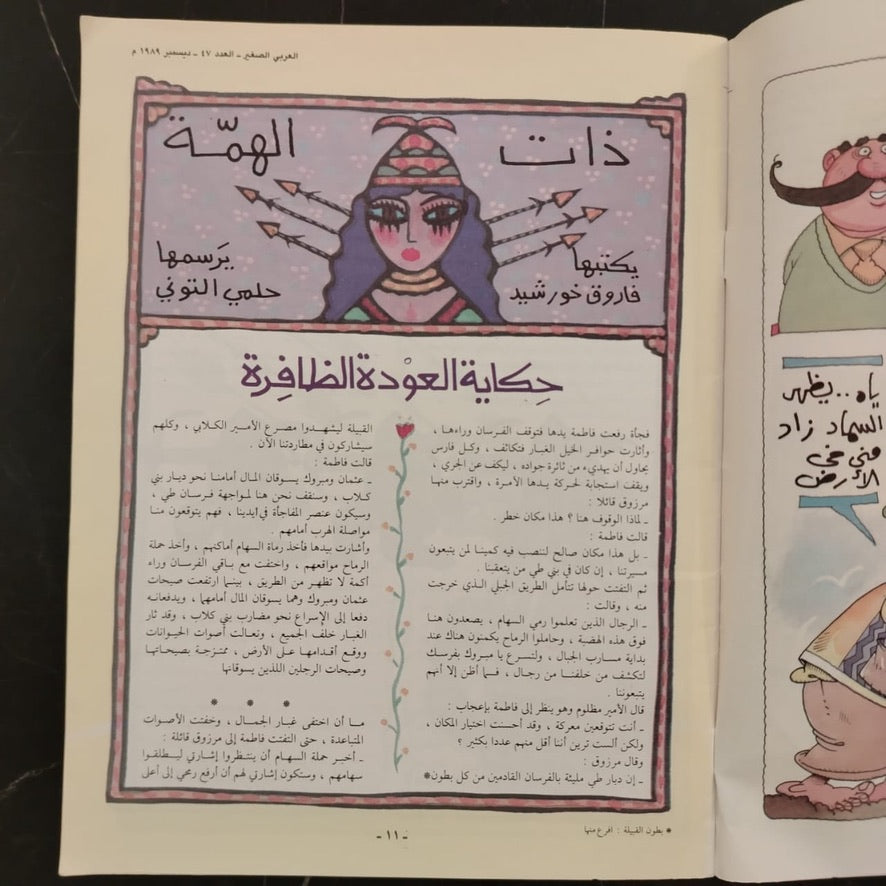 العربي الصغير - العدد ٤٧ - ديسمبر ١٩٨٩ م
ذات الهمّة
يكتبها
فاروق خورشيد
يَرسمها
حلمي التوني
حِكاية العوْدة الظافِرة
فجأة رفعت فاطمة يدها فتوقف الفرسان وراءها ،
وأثارت حوافر الخيل الغبار فتكاثف ، وكل فارس
يحاول أن يهديء من ثائرة جواده ، ليكف عن الجري ،
ويقف استجابة لحركة يدها الآمرة ، واقترب منها
مرزوق قائلا :
ـ لماذا الوقوف هنا ؟ هذا مكان خطر .
قالت فاطمة :
ـ بل هذا مكان صالح لننصب فيه كمينا لمن يتبعون
مسيرتنا ، إن كان في بني طي من يتعقبنا .
ثم التفتت حولها تتأمل الطريق الجبلي الذي خرجت
منه ، وقالت :
ـ الرجال الذين تعلموا رمي السهام ، يصعدون هنا
فوق هذه الهضبة ، وحاملوا الرماح يكمنون هناك عند
بداية مسارب الجبال ، ولتسرع يا مبروك بفرسك
لتكشف من خلفنا من رجال ، فما أظن إلا أنهم
يتبعوننا .
قال الأمير مظلوم وهو ينظر إلى فاطمة بإعجاب :
ـ أنت تتوقعين معركة ، وقد أحسنت اختيار المكان ،
ولكن ألست ترين أننا أقل منهم عددا بكثير ؟
وقال مرزوق :
ـ إن ديار طي مليئة بالفرسان القادمين من كل بطون*
القبيلة ليشهدوا مصرع الأمير الكلابي ، وكلهم
سيشاركون في مطاردتنا الآن .
قالت فاطمة :
ـ عثمان ومبروك يسوقان المال أمامنا نحو ديار بني
كلاب ، وسنقف نحن هنا لمواجهة فرسان طي ،
وسيكون عنصر المفاجأة في أيدينا ، فهم يتوقعون منا
مواصلة الهرب أمامهم .
وأشارت بيدها فأخذ رماة السهام أماكنهم ، وأخذ حملة
الرماح مواقعهم ، واختفت مع باقي الفرسان وراء
أكمة لا تظهر من الطريق ، بينما ارتفعت صيحات
عثمان ومبروك وهما يسوقان المال أمامهما ، ويدفعانه
دفعا إلى الإسراع نحو مضارب بني كلاب ، وقد ثار
الغبار خلف الجميع ، وتعالت أصوات الحيوانات
ووقع أقدامها على الأرض ، ممتزجة بصيحاتها
وصيحات الرجلين اللذين يسوقانها
* * *
ما أن اختفى غبار الجمال ، وخفتت الأصوات
المتباعدة ، حتى التفتت فاطمة إلى مرزوق قائلة :
ـ أخبر حملة السهام أن ينتظروا إشارتي ليطلقوا
سهامهم ، وستكون إشارتي لهم أن أرفع رمحي إلى أعلى
* بطون القبيلة : أفرع منها
- ١١ -
ياه..يظهر
السماد زاد
الأرض